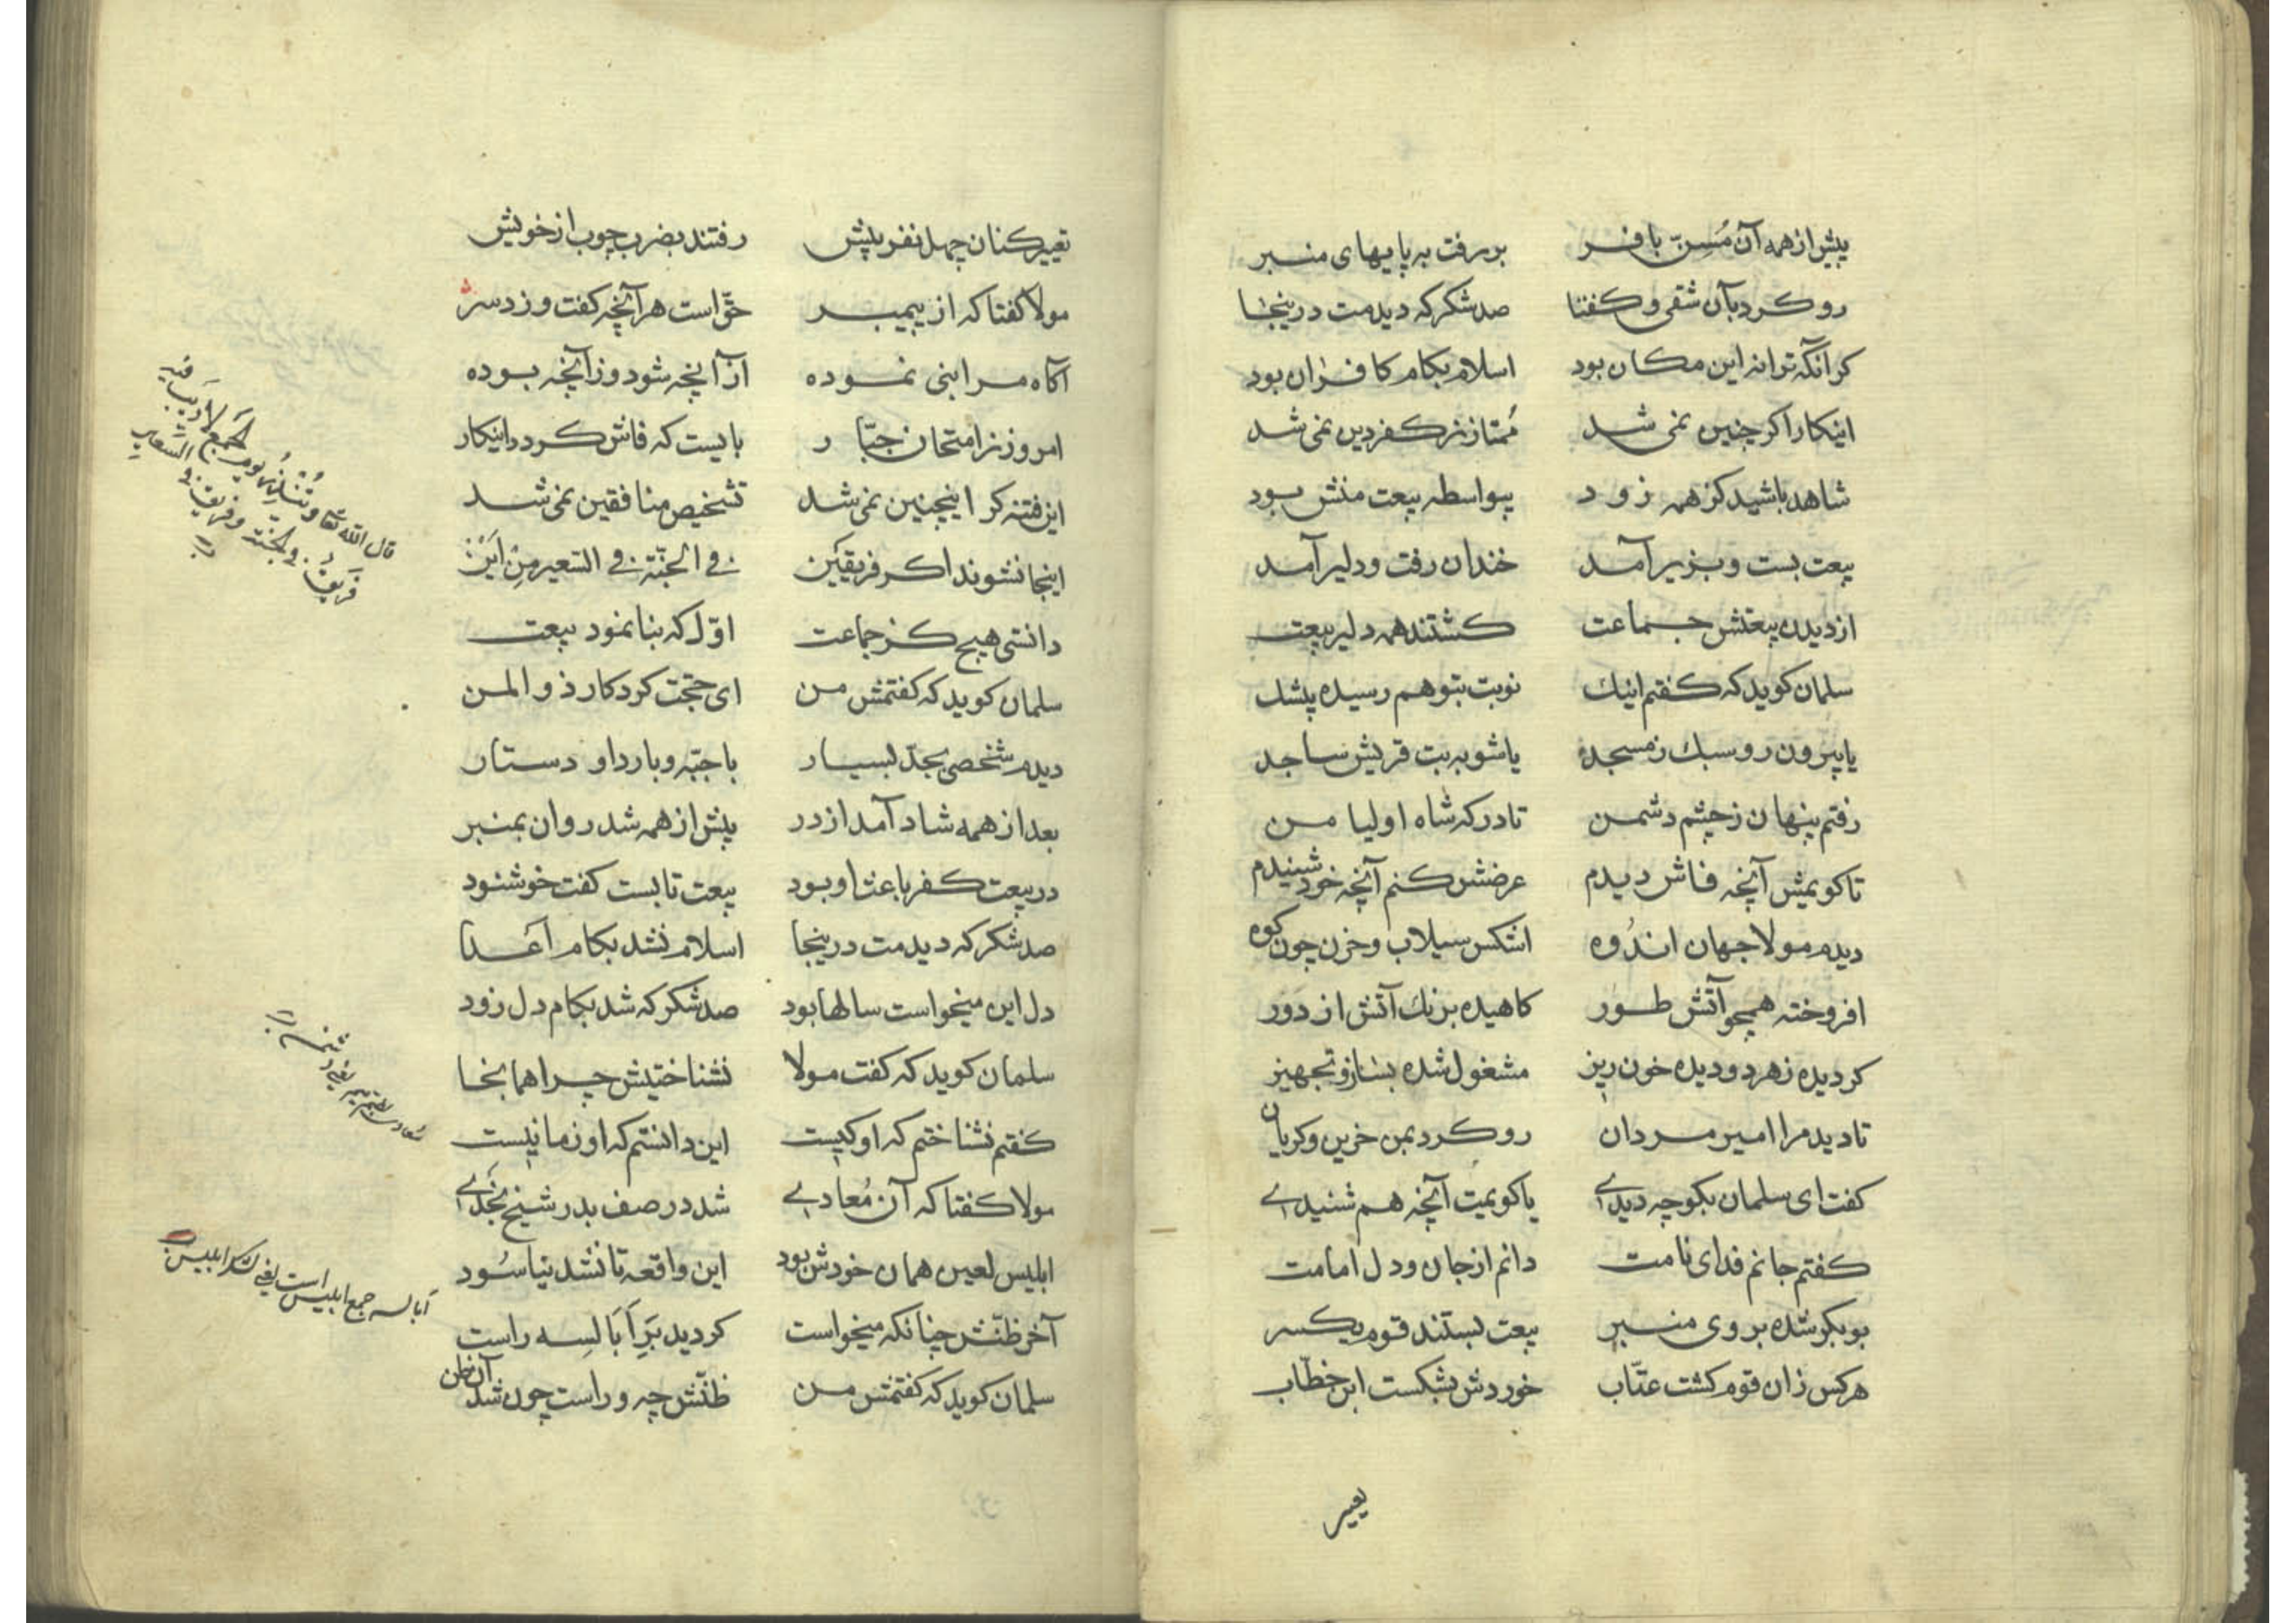 پیش از همه آن مُسِنّ بافر بررفت به پایهای منبر
رو کرد بآن شقی و کفتا صد شکر که دیدمت درینجا
کر آنکه ترا نه این مکان بود اسلام بکام کافران بود
اینکار اکر چنین نمی شد مُمتاز ز کفر دین نمی شد
شاهد باشید کز همه زود بیواسطه بیعت منش بود
بیعت بست و بزیر آمد خندان رفت و دلیر آمد
از دیدن بیعتش جماعت کشتند همه دلیر بیعت
سلمان کوید که کفتم اینك نوبت بتو هم رسیده بیشك
یا بیرون رو سبك ز مسجد یا شو به بت قریش ساجد
رفتم پنهان ز چشم دشمن تا درکه شاه اولیا من
تا کویمش آنچه فاش دیدم عرضش کنم آنچه خود شنیدم
دیدم مولا جهان اندُوه اشکس سیلاب و حزن چون کوه
افروخته همچو آتش طور کاهیده برنك آتش از دَور
کردیده ز هر دو دیده خون ریز مشغول شده بساز و تجهیز
تا دید مرا امیر مردان رو کرد بمن حزین و کریان
کفت ای سلمان بکو چه دیدی یا کویمت آنچه هم شنیدی
کفتم جانم فدای نامت دانم از جان و دل امامت
بوبکر شده بروی منبر بیعت بستند قوم یکسر
هر کس زان قوم کشت عتّاب خوردش بشکست ابن خطّاب
تعییر
تعییرکنان چهل نفر بیش رفتند بضرب چوب از خویش
مولا کفتا که از پیمبر حقّ است هر آنچه کفت و زد سر
آکاه مرا نبی نموده از آنچه شود وز آنچه بوده
امروز ز امتحان جبّار بایست که فاش کردد اینکار
این فتنه کر اینچنین نمی شد تشخیص منافقین نمی شد
اینجا نشوند اکر فریقَین فی الجنّة فی السّعیر مِنْ اَیَنْ
دانستی هیچ کز جماعت اوّل که بنا نمود بیعت
سلمان کوید که کفتمش من ای حجّت کردکار ذوالمن
دیدم شخصی بجدّ بسیار با جبّه و با ردا و دستار
بعد از همه شاد آمد از در پیش از همه شد روان بمنبر
در بیعت کفر باعث او بود بیعت تا بست کفت خوشنود
صد شکر که دیدمت درینجا اسلام نشد بکام اَعَدا
دل این میخواست سالها بود صد شکر که شد بکام دل زود
سلمان کوید که کفت مولا نشناختیش چرا همانجا
کفتم نشناختم که او کیست این دانستم که او ز ما نیست
مولا کفتا که آن مُعادی شد در صف بدر شیخ نَجْدی
ابلیس لعین همان خودش بود این واقعه تا نشد نیاسُود
آخر ظنّش چنانکه میخواست کردید بَرِ اَبَالِسه راست
سلمان کوید که کفتمش من ظنّش چه و راست چون شد آن ظن
قال الله تعا وتُنْذِرَ یوم الجَمع لا رَیبَ فیه
فَریقٌ فی الجَنّة وفریق فی السَّعیر
ابالسه جمع ابلیس است یعنی لشکر ابلیس